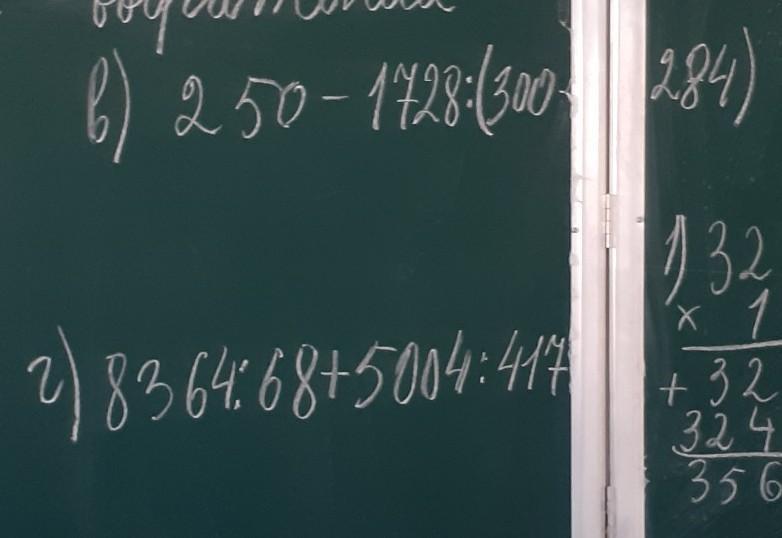 в) 250-1728:(300- 284)
г) 8364:68+5004:417
1) 32
× 1
+ 32
324
356